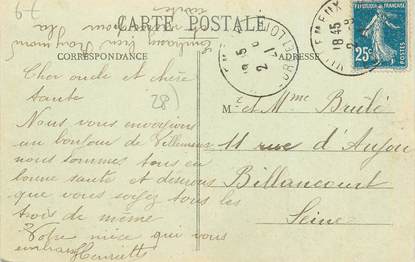 CARTE POSTALE
CORRESPONDANCE
ADRESSE
REPUBLIQUE FRANÇAISE
25c
VILLEMEUX
18 45
79
28)
Cher oncle et chère
tante
Nous vous envoyons
un bonjour de Villemeux
nous sommes tous en
bonne santé et désirons
que vous soyez tous les
trois de même
Votre nièce qui vous
embrasse
Henriette
M. et Mme Brûlé
11 rue d'Anjou
Billancourt
Seine